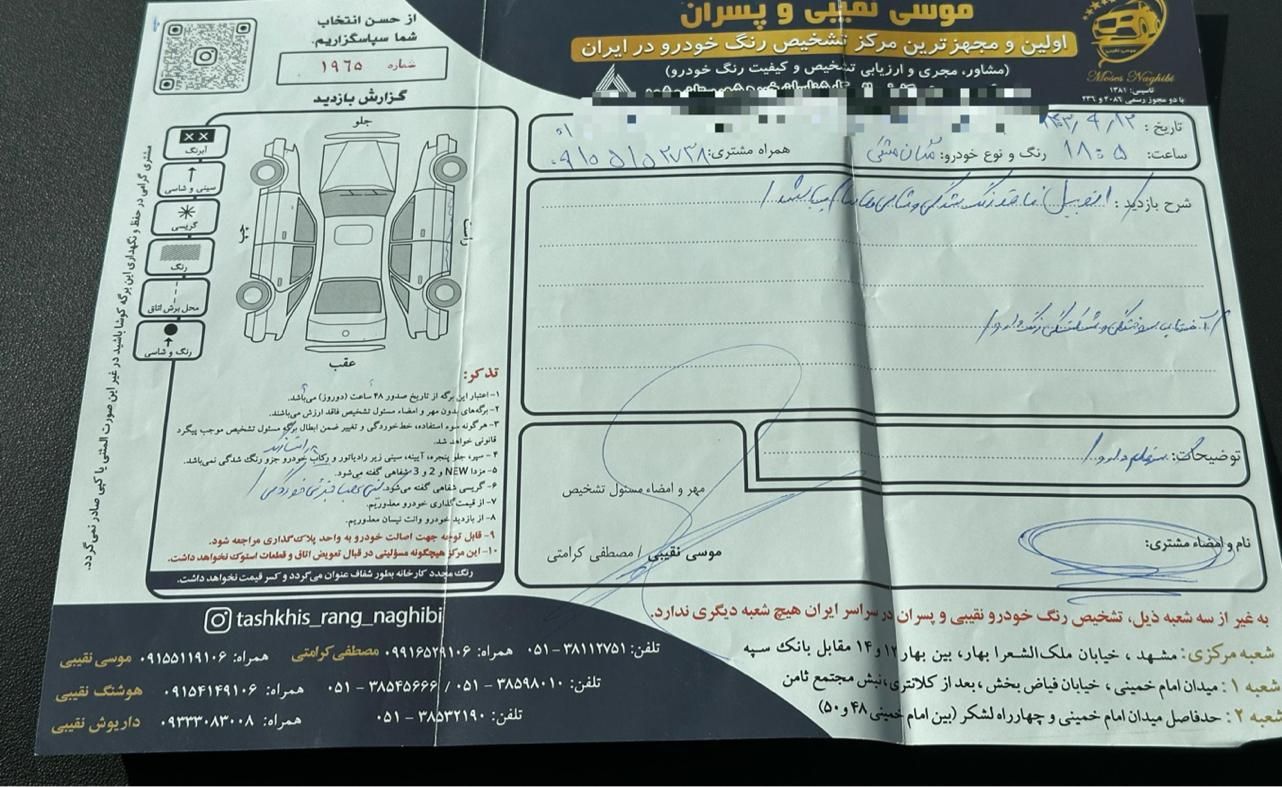 موسی نقیبی و پسران
اولین و مجهزترین مرکز تشخیص رنگ خودرو در ایران
(مشاور، مجری و ارزیابی تشخیص و کیفیت رنگ خودرو)
Moses Naghibi
تاسیس: ۱۳۸۱
با دو مجوز رسمی ۲۰۸۶ و ۲۳۶
از حسن انتخاب
شما سپاسگزاریم.
شماره ۱۹۶۵
گزارش بازدید
تاریخ :
ساعت: ۱۸:۰۵ رنگ و نوع خودرو:
همراه مشتری:
شرح بازدید : اتومبیل فاقد رنگ شدگی
آفتاب سوختگی و شکستگی رنگ دارد
توضیحات:
نام و امضاء مشتری:
مهر و امضاء مسئول تشخیص
موسی نقیبی / مصطفی کرامتی
جلو
چپ
راست
عقب
آبرنگ
سینی و شاسی
گریسی
رنگ
محل برش اتاق
رنگ و شاسی
مشتری گرامی در حفظ و نگهداری این برگه کوشا باشید در غیر این صورت المثنی یا کپی صادر نمی‌گردد.
تذکر:
۱- اعتبار این برگه از تاریخ صدور ۴۸ ساعت (دوروز) می‌باشد.
۲- برگه‌های بدون مهر و امضاء مسئول تشخیص فاقد ارزش می‌باشند.
۳- هرگونه سوء استفاده، خط‌خوردگی و تغییر ضمن ابطال برگه مسئول تشخیص موجب پیگرد
قانونی خواهد شد.
۴- سپر، جلو پنجره، آیینه، سینی زیر رادیاتور و رکاب خودرو جزو رنگ شدگی نمی‌باشد.
۵- مزدا NEW و 2 و 3 شفاهی گفته می‌شود.
۶- گریسی شفاهی گفته می‌شود.
۷- از قیمت‌گذاری خودرو معذوریم.
۸- از بازدید خودرو وانت نیسان معذوریم.
۹- قابل توجه جهت اصالت خودرو به واحد پلاک‌گذاری مراجعه شود.
۱۰- این مرکز هیچگونه مسؤلیتی در قبال تعویض اتاق و قطعات استوک نخواهد داشت.
رنگ مجدد کارخانه بطور شفاف عنوان می‌گردد و کسر قیمت نخواهد داشت.
tashkhis_rang_naghibi
به غیر از سه شعبه ذیل، تشخیص رنگ خودرو نقیبی و پسران در سراسر ایران هیچ شعبه دیگری ندارد.
شعبه مرکزی: مشهد ، خیابان ملک‌الشعرا بهار، بین بهار ۱۲ و ۱۴ مقابل بانک سپه
تلفن: ۳۸۱۱۲۷۵۱ - ۰۵۱ همراه: ۰۹۹۱۶۵۲۹۱۰۶ مصطفی کرامتی همراه: ۰۹۱۵۵۱۱۹۱۰۶ موسی نقیبی
شعبه ۱ : میدان امام خمینی ، خیابان فیاض بخش ، بعد از کلانتری، نبش مجتمع ثامن
تلفن: ۳۸۵۹۸۰۱۰ - ۰۵۱ / ۳۸۵۴۵۶۶۶ - ۰۵۱ همراه: ۰۹۱۵۴۱۴۹۱۰۶ هوشنگ نقیبی
شعبه ۲ : حدفاصل میدان امام خمینی و چهارراه لشکر (بین امام خمینی ۴۸ و ۵۰)
تلفن: ۳۸۵۳۲۱۹۰ - ۰۵۱ همراه: ۰۹۳۳۳۰۸۳۰۰۸ داریوش نقیبی